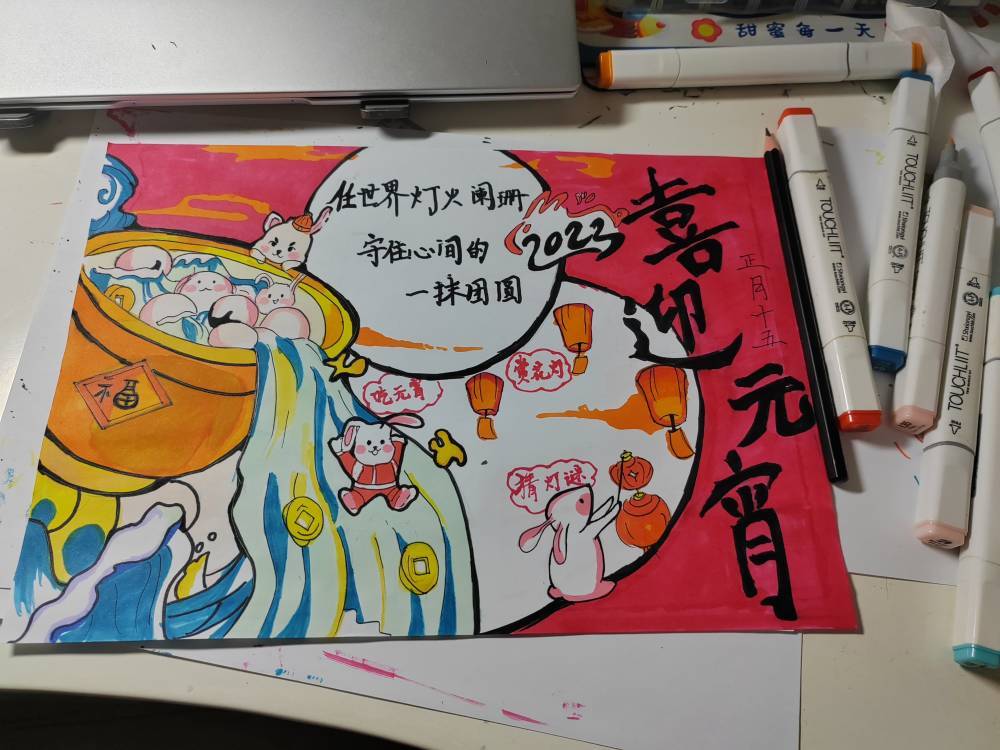 甜蜜每一天
任世界灯火阑珊
守住心间的
一抹团圆
2023
喜迎元宵
正月十五
赏花灯
吃元宵
猜灯谜
福
TOUCHLIIT
TOUCHLIIT
TOUCHLIIT
TOUCHLIIT